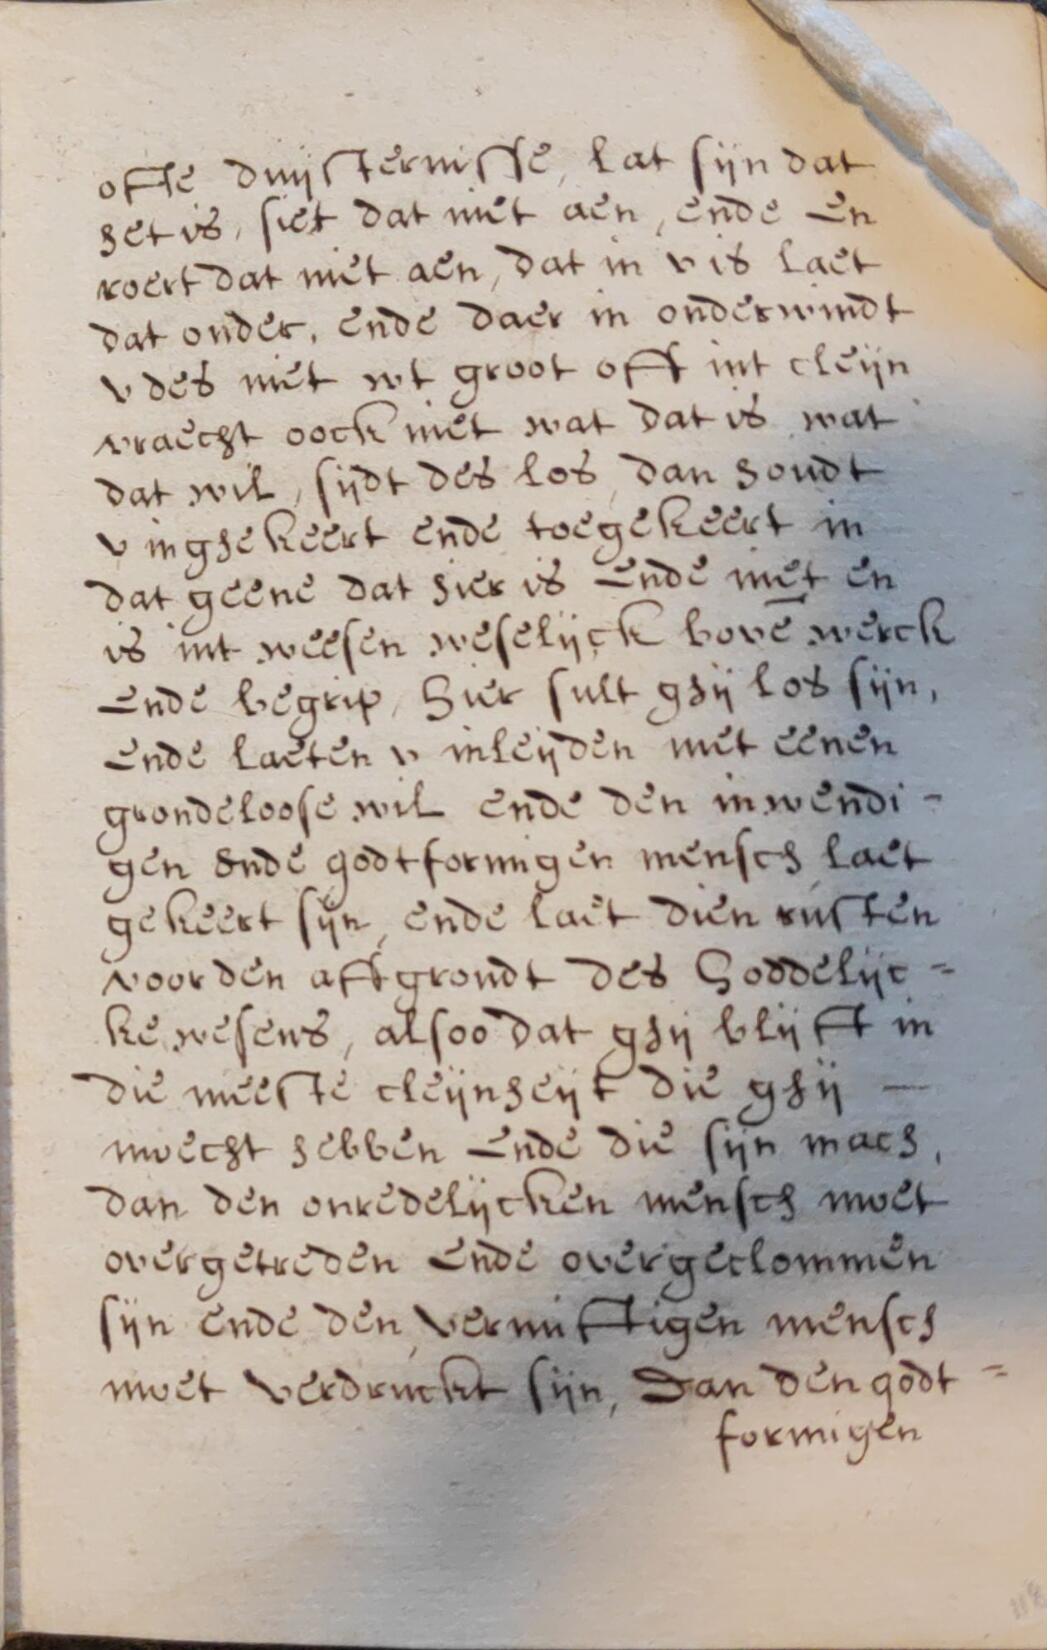 offte duijsternisse, lat sijn dat
het is, siet dat niet aen, ende en
roert dat niet aen, dat in v is laet
dat onder, ende daer in onderwindt
v des niet wt groot offt int cleijn
vraecht oock niet wat dat is wat
dat wil, sijdt des los, dan houdt
v inghekeert ende toegekeert in
dat geene dat hier is ende niet en
is int weesen weselijck bovē werck
ende begrip, Hier sult ghij los sijn,
ende laeten v inleijden met eenen
grondeloose wil ende den inwendi-
gen ende godtformigen mensch laet
gekeert sijn, ende laet dien rusten
voor den afftgrondt des Goddelijc=
ke wesens, alsoo dat ghij blijfft in
die meeste cleijnheijt die ghij —
moecht hebben ende die sijn mach,
dan den onredelijcken mensch moet
overgetreden ende overgeclommen
sijn ende den vernufftigen mensch
moet verdruckt sijn, Dan den godt=
formigen